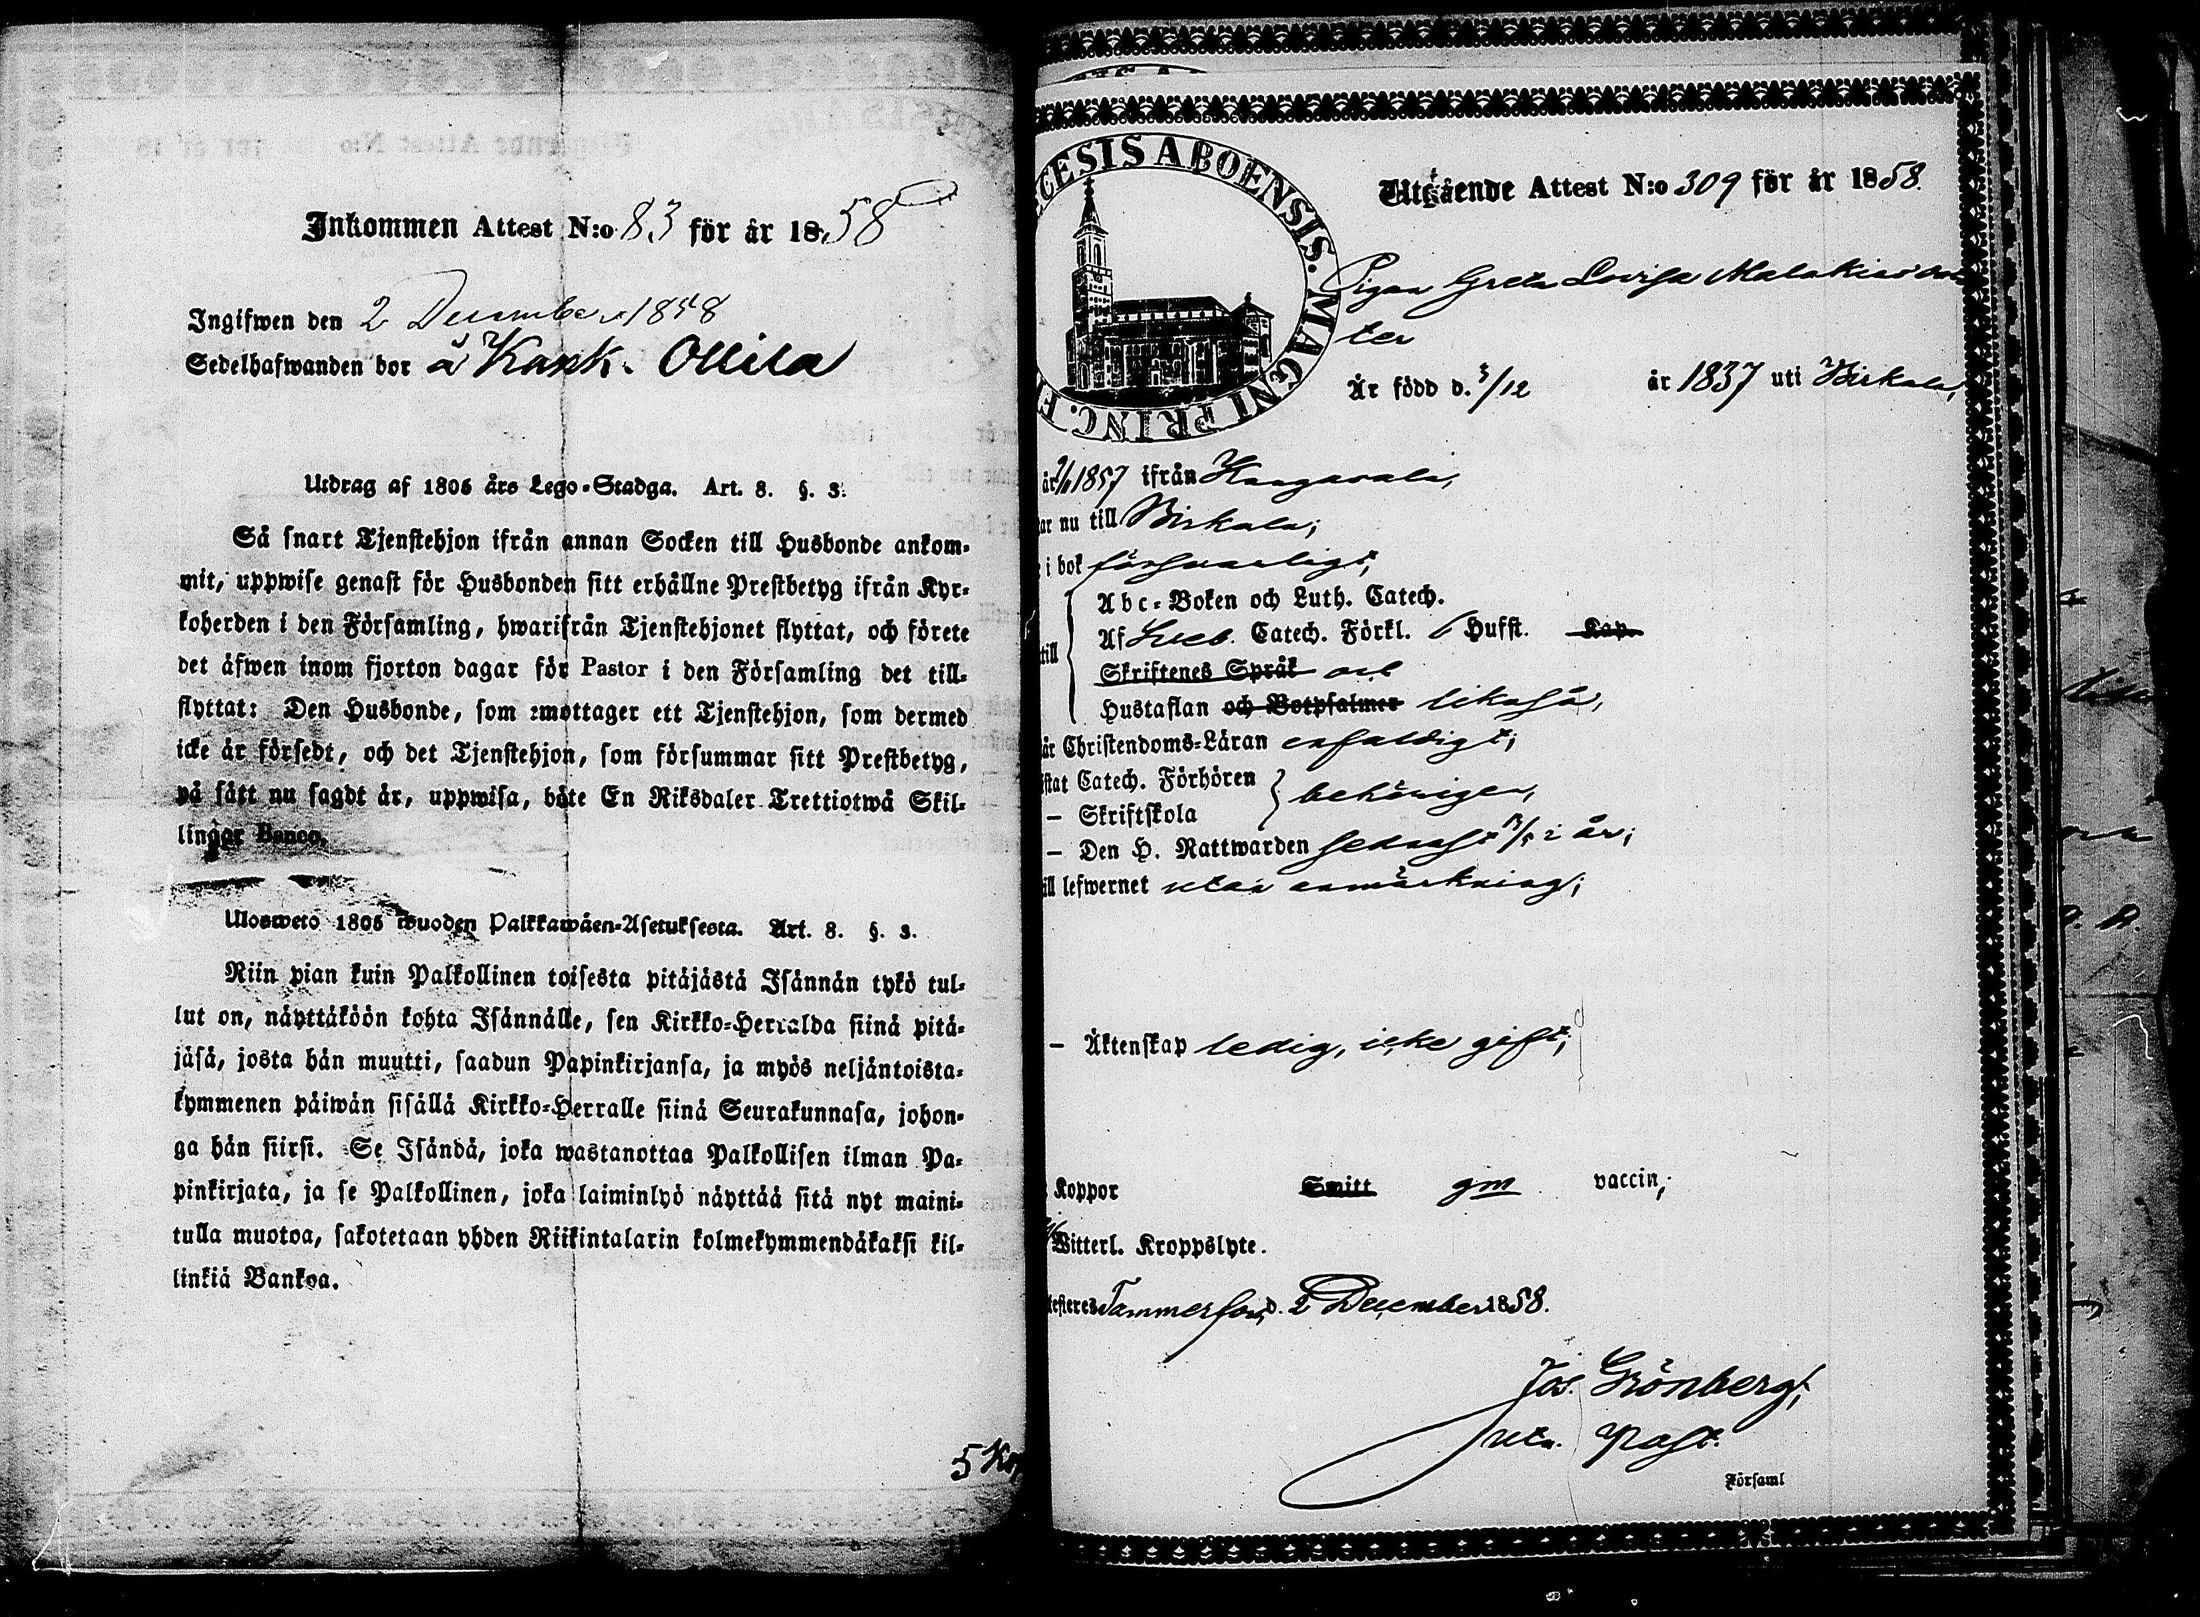 Inkommen Attest N:o 83 för år 1858
Ingifwen den 2 December 1858
Sedelhafwanden bor å Kank. Ollila
Utdrag af 1805 års Lego-Stadga. Art. 8. §. 3.
Så snart Tjenstehjon ifrån annan Socken till Husbonde ankom-
mit, uppwise genast för Husbonden sitt erhållne Prestbetyg ifrån Kyr-
koherden i den Församling, hwarifrån Tjenstehjonet flyttat, och förete
det äfwen inom fjorton dagar för Pastor i den Församling det till-
flyttat: Den Husbonde, som emottager ett Tjenstehjon, som dermed
icke är försedt, och det Tjenstehjon, som försummar sitt Prestbetyg,
på sätt nu sagdt är, uppwisa, böte En Riksdaler Trettiotwå Skil-
lingar Banco.
Ulosweto 1805 wuoden Palkkawäen-Asetuksesta. Art. 8. §. 3.
Niin pian kuin Palkollinen toisesta pitäjästä Isännän tykö tul-
lut on, näyttäköön kohta Isännälle, sen Kirkko-Herralda siinä pitä-
jäsä, josta hän muutti, saadun Papinkirjansa, ja myös neljäntoista-
kymmenen päiwän sisällä Kirkko-Herralle siinä Seurakunnasa, johon-
ga hän siirsi. Se Isändä, joka wastanottaa Palkollisen ilman Pa-
pinkirjata, ja se Palkollinen, joka laiminlyö näyttää sitä nyt maini-
tulla muotoa, sakotetaan yhden Riikintalarin kolmekymmendäkaksi kil-
linkiä Bankoa.
5 Kop
Utgående Attest N:o 309 för år 1858.
CESIS ABOENSIS. MAGNI PRINC. F
Pigan Greta Lovisa Malakiasdot-
ter
Är född d. 3/12 år 1837 uti Birkala,
år 1857 ifrån Kangasala,
ar nu till Birkala;
i bok försvarligt,
till
Abc-Boken och Luth. Catech.
Af Sveb. Catech. Förkl. 6 Hufst. Kap.
Skriftenes Språk och
Hustaflan och Botpsalmer likaså,
år Christendoms-Läran enfaldigt;
istat Catech. Förhören
behörigen,
— Skriftskola
— Den H. Nattwarden sednast i år;
ill lefwernet utan anmärkning;
— Äktenskap ledig, icke gift;
Koppor Smitt gm vaccin,
Witterl. Kroppslyte.
testeres Tammerfors d. 2 December 1858.
Jos. Grönberg,
Past.
Församl